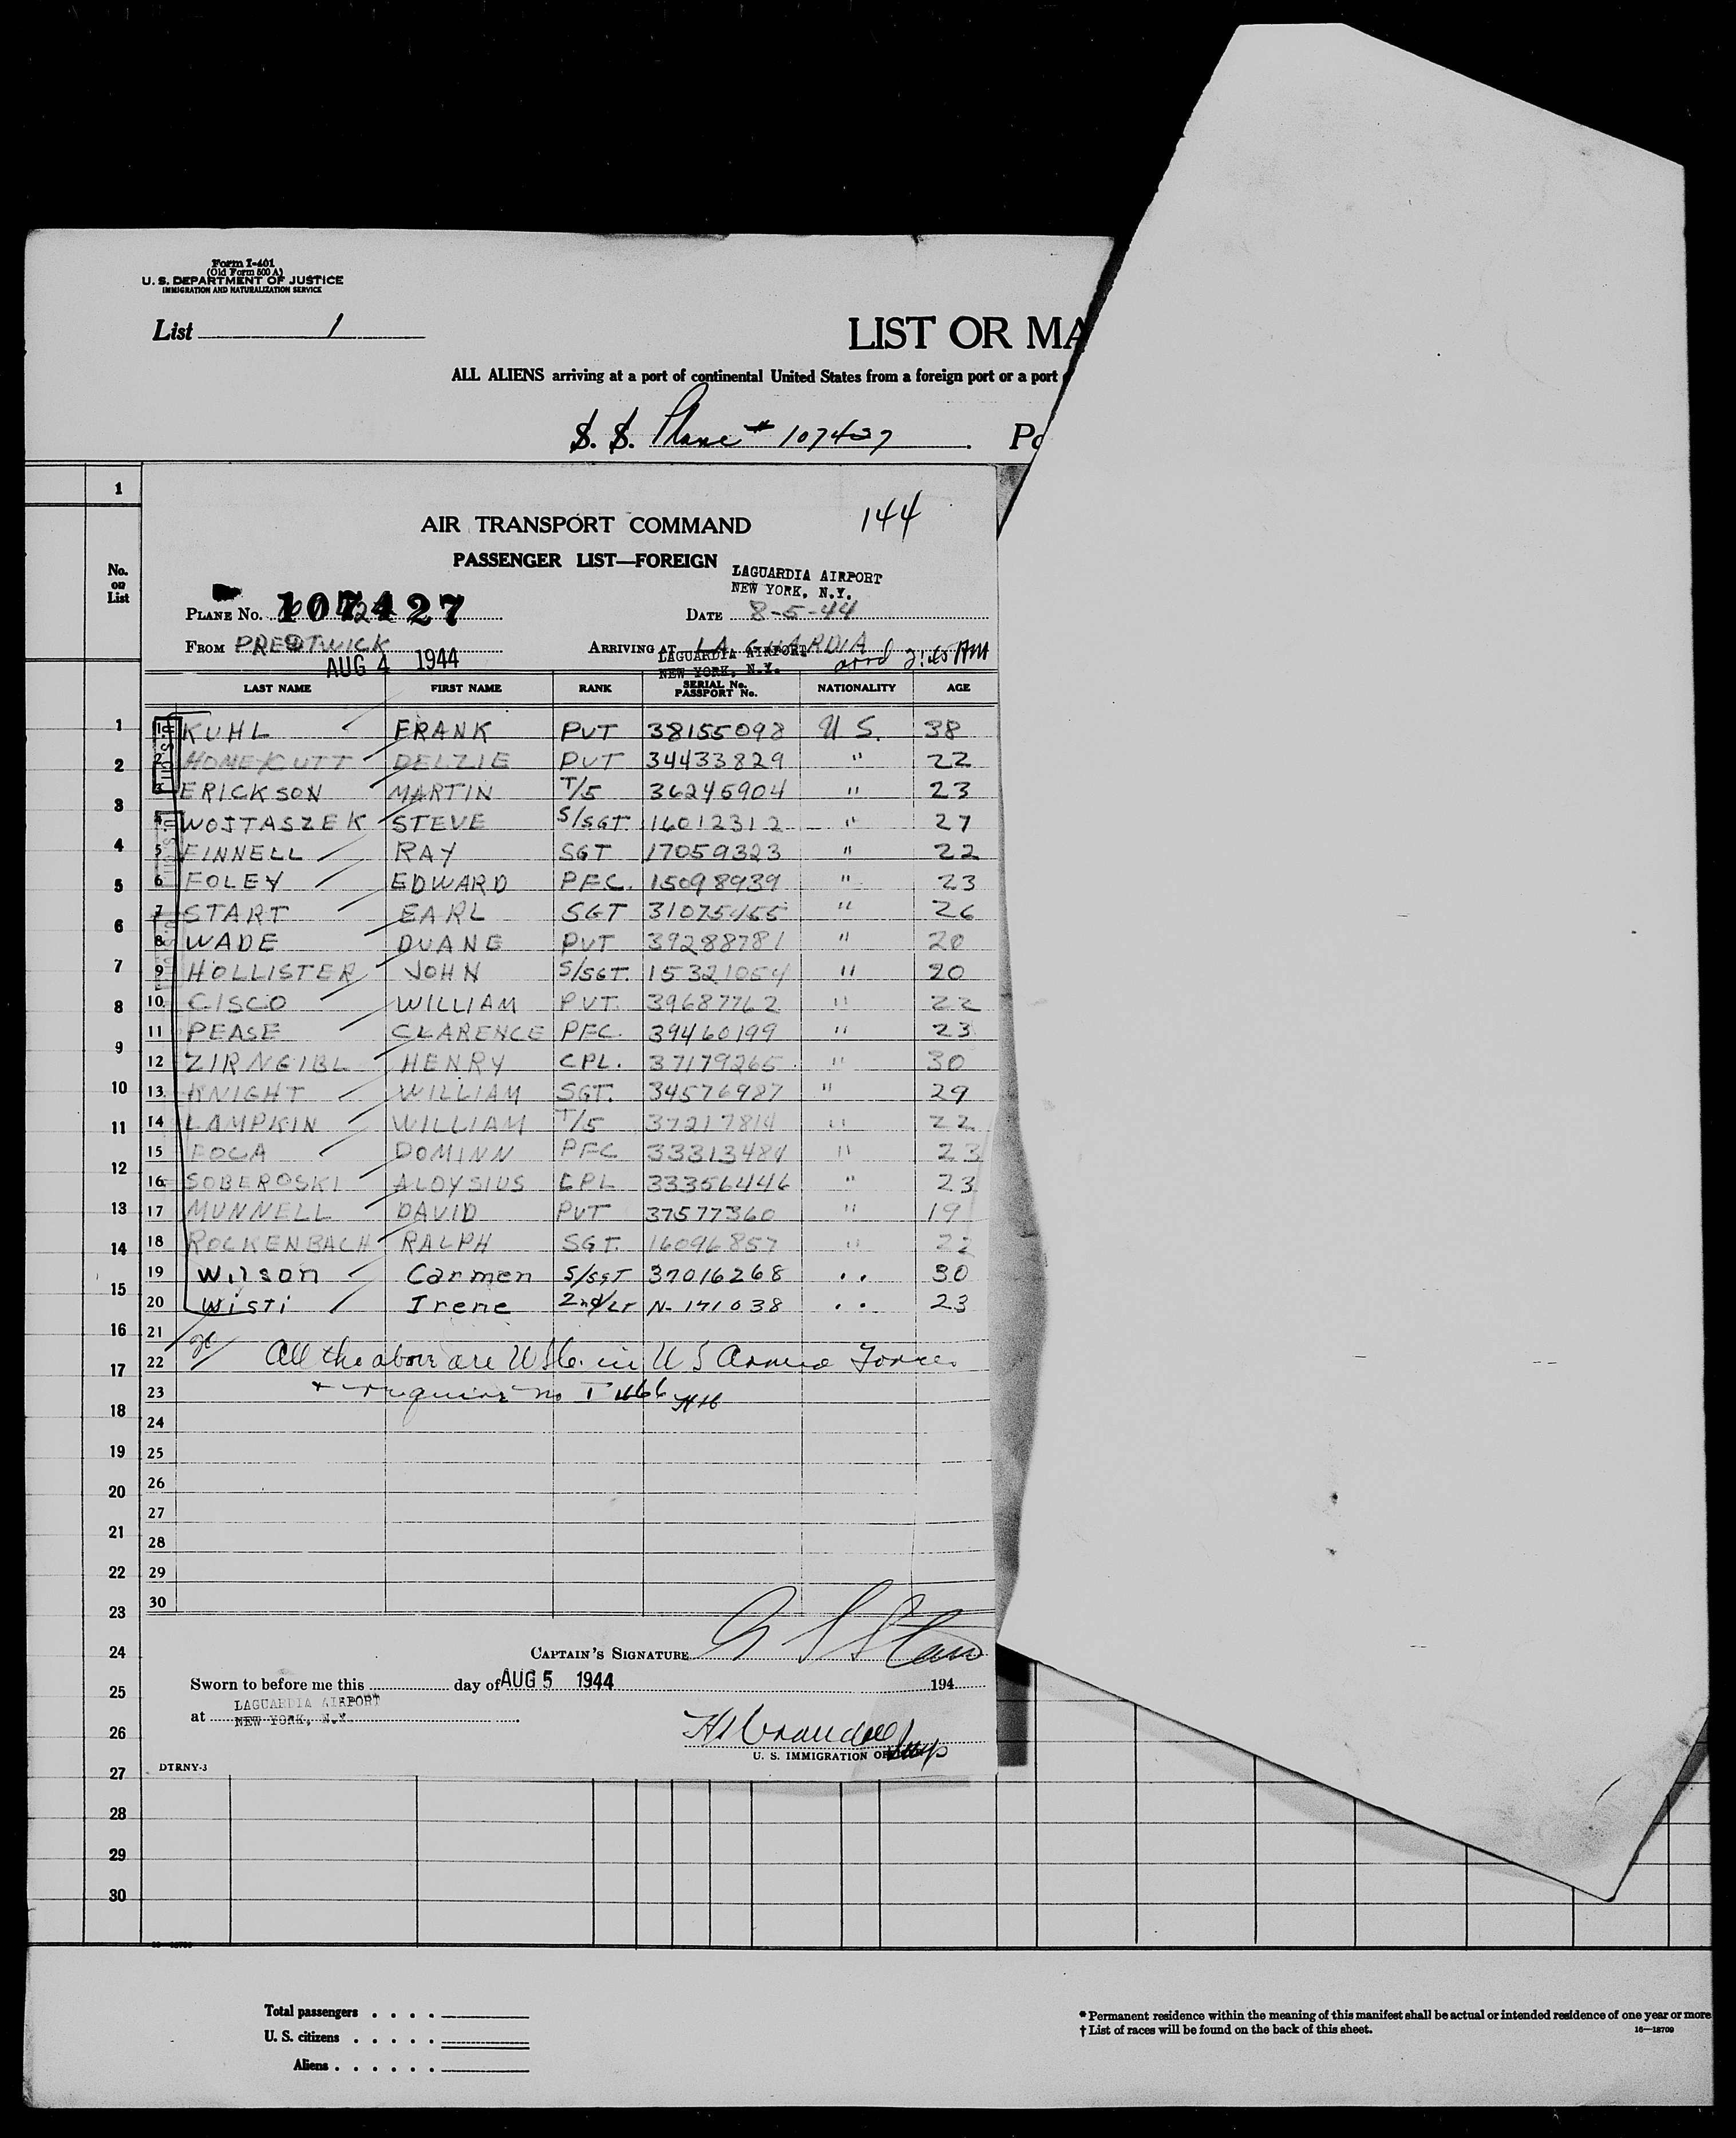 Form I-401
(Old Form 500 A)
U. S. DEPARTMENT OF JUSTICE
IMMIGRATION AND NATURALIZATION SERVICE
List 1
LIST OR MA
ALL ALIENS arriving at a port of continental United States from a foreign port or a port
S. S. Plane # 107427 Po
1
No. on List
144
AIR TRANSPORT COMMAND
PASSENGER LIST—FOREIGN
LAGUARDIA AIRPORT
NEW YORK, N.Y.
PLANE No. 107427 DATE 8-5-44
FROM PRESTWICK ARRIVING AT LA GUARDIA
AUG 4 1944 LAGUARDIA AIRPORT
NEW YORK, N.Y. arrd AM
LAST NAME FIRST NAME RANK SERIAL No. PASSPORT No. NATIONALITY AGE
1 KUHL FRANK PVT 38155098 U S. 38
2 HONEYCUTT DELZIE PVT 34433829 " 22
3 ERICKSON MARTIN T/5 36245904 " 23
4 WOJTASZEK STEVE S/SGT. 16012312 " 27
5 FINNELL RAY SGT 17059323 " 22
6 FOLEY EDWARD PFC. 15098939 " 23
7 START EARL SGT 31075455 " 26
8 WADE DUANE PVT 39288781 " 20
9 HOLLISTER JOHN S/SGT. 15321054 " 20
10 CISCO WILLIAM PVT. 39687762 " 22
11 PEASE CLARENCE PFC. 39460199 " 23
12 ZIRNGIBL HENRY CPL. 37179265 " 30
13 KNIGHT WILLIAM SGT. 34576987 " 29
14 LAMPKIN WILLIAM T/5 37217814 " 22
15 FOCA DOMINN PFC 33313484 " 23
16 SOBEROSKI ALOYSIUS CPL 33356446 " 23
17 MUNNELL DAVID PVT 37577360 " 19
18 ROCKENBACH RALPH SGT. 16096857 " 22
19 Wilson Carmen S/SGT 37016268 " 30
20 Wisti Irene 2nd/Lt N-171038 " 23
21
22 All the above are USC. in U S Armed Forces
23 + require no I 466 HHC
24
25
26
27
28
29
30
CAPTAIN'S SIGNATURE
Sworn to before me this day of AUG 5 1944 194
at LAGUARDIA AIRPORT
NEW YORK, N.Y.
U. S. IMMIGRATION
DTRNY-3
1
2
3
4
5
6
7
8
9
10
11
12
13
14
15
16
17
18
19
20
21
22
23
24
25
26
27
28
29
30
Total passengers
U. S. citizens
Aliens
* Permanent residence within the meaning of this manifest shall be actual or intended residence of one year or more
† List of races will be found on the back of this sheet. 16—18709